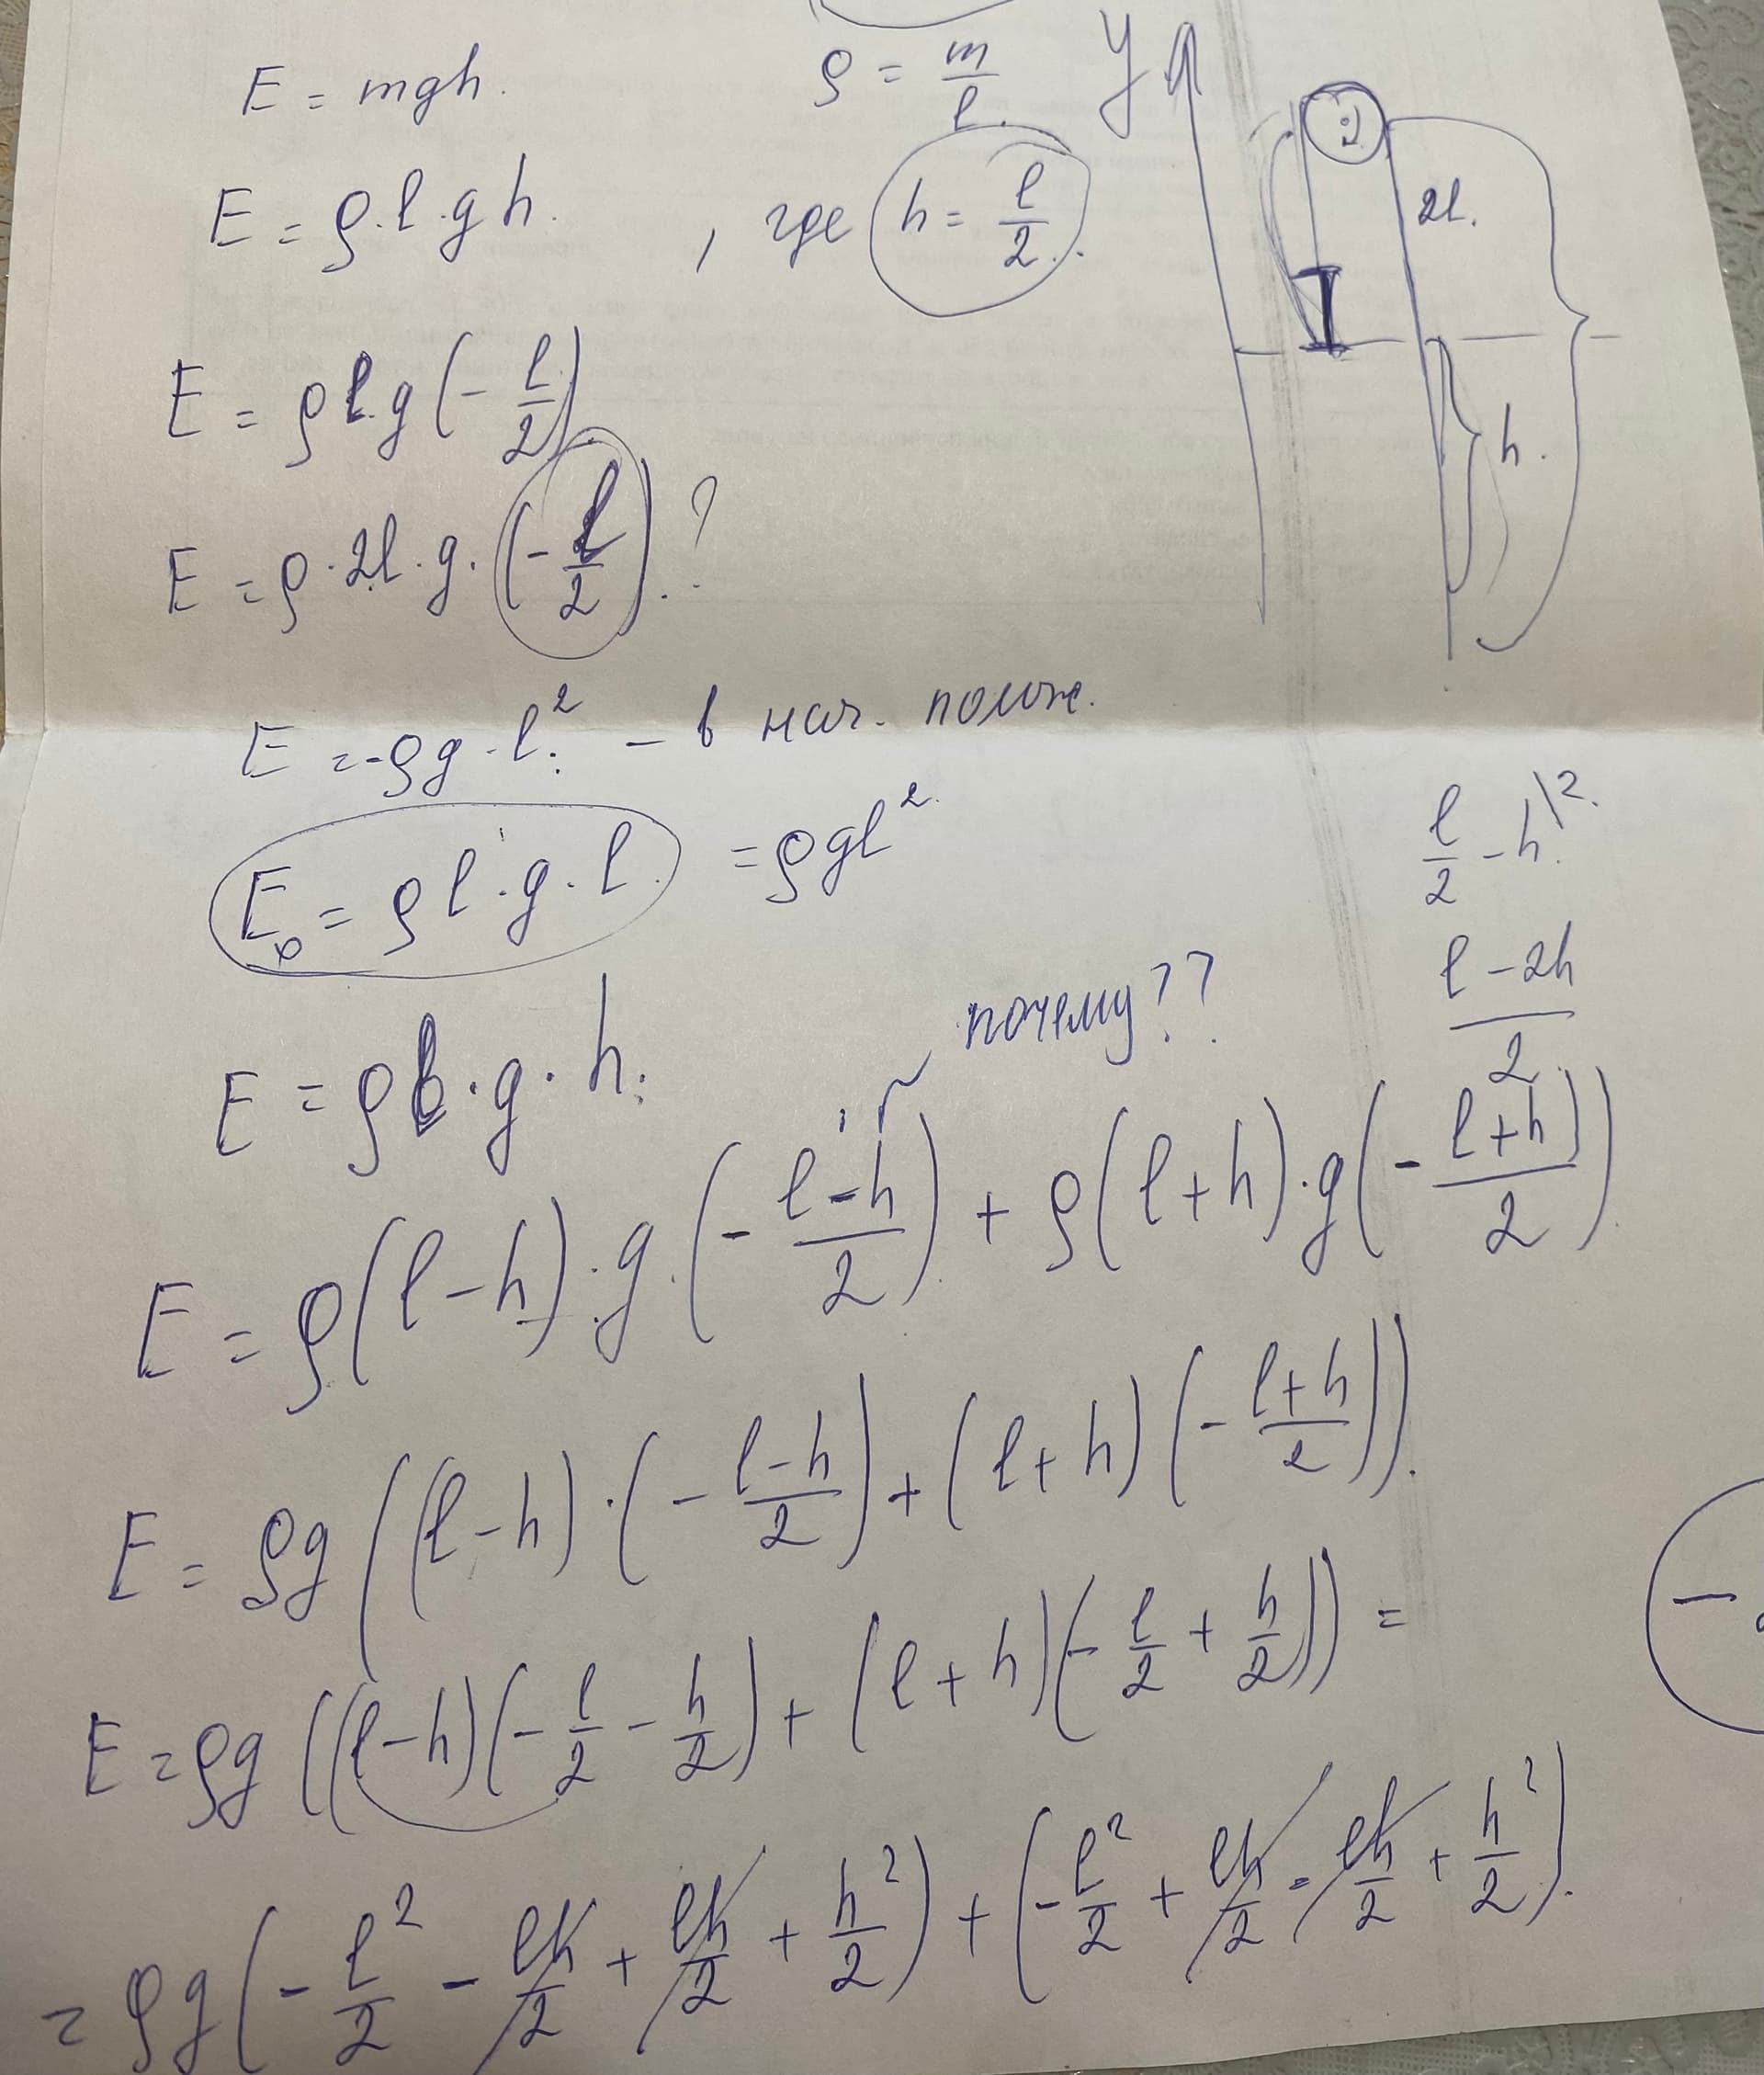 E = mgh.
ρ = m/l.
y
E = ρ·l·g h. , где h = l/2.
2l.
E = ρlg(-l/2)
h.
E = ρ·2l·g·(-l/2). ?
E = -ρg·l². - в нач. полож.
E₀ = ρl·g·l. = ρgl².
l/2 - h
l - 2h / 2
E = ρl·g·h.
почему??
E = ρ(l-h)·g·(- (l-h)/2) + ρ(l+h)·g(- (l+h)/2)
E = ρg((l-h)·(- (l-h)/2) + (l+h)(- (l+h)/2)).
E = ρg((l-h)(- l/2 - h/2) + (l+h)(- l/2 + h/2)) =
= ρg(- l²/2 - lh/2 + lh/2 + h²/2) + (- l²/2 + lh/2 - lh/2 + h²/2).